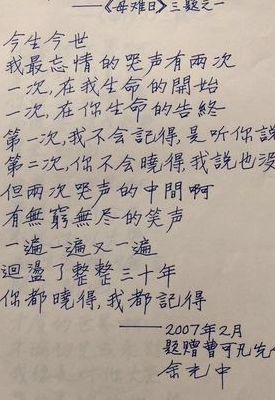 ——《母难日》三题之一
今生今世
我最忘情的哭声有两次
一次,在我生命的開始
一次,在你生命的告終
第一次,我不会記得,是听你説
第二次,你不会曉得,我説也没
但两次哭声的中間啊
有無窮無尽的笑声
一遍一遍又一遍
迴盪了整整三十年
你都曉得,我都記得
——2007年2月
題贈曹可凡先
余光中